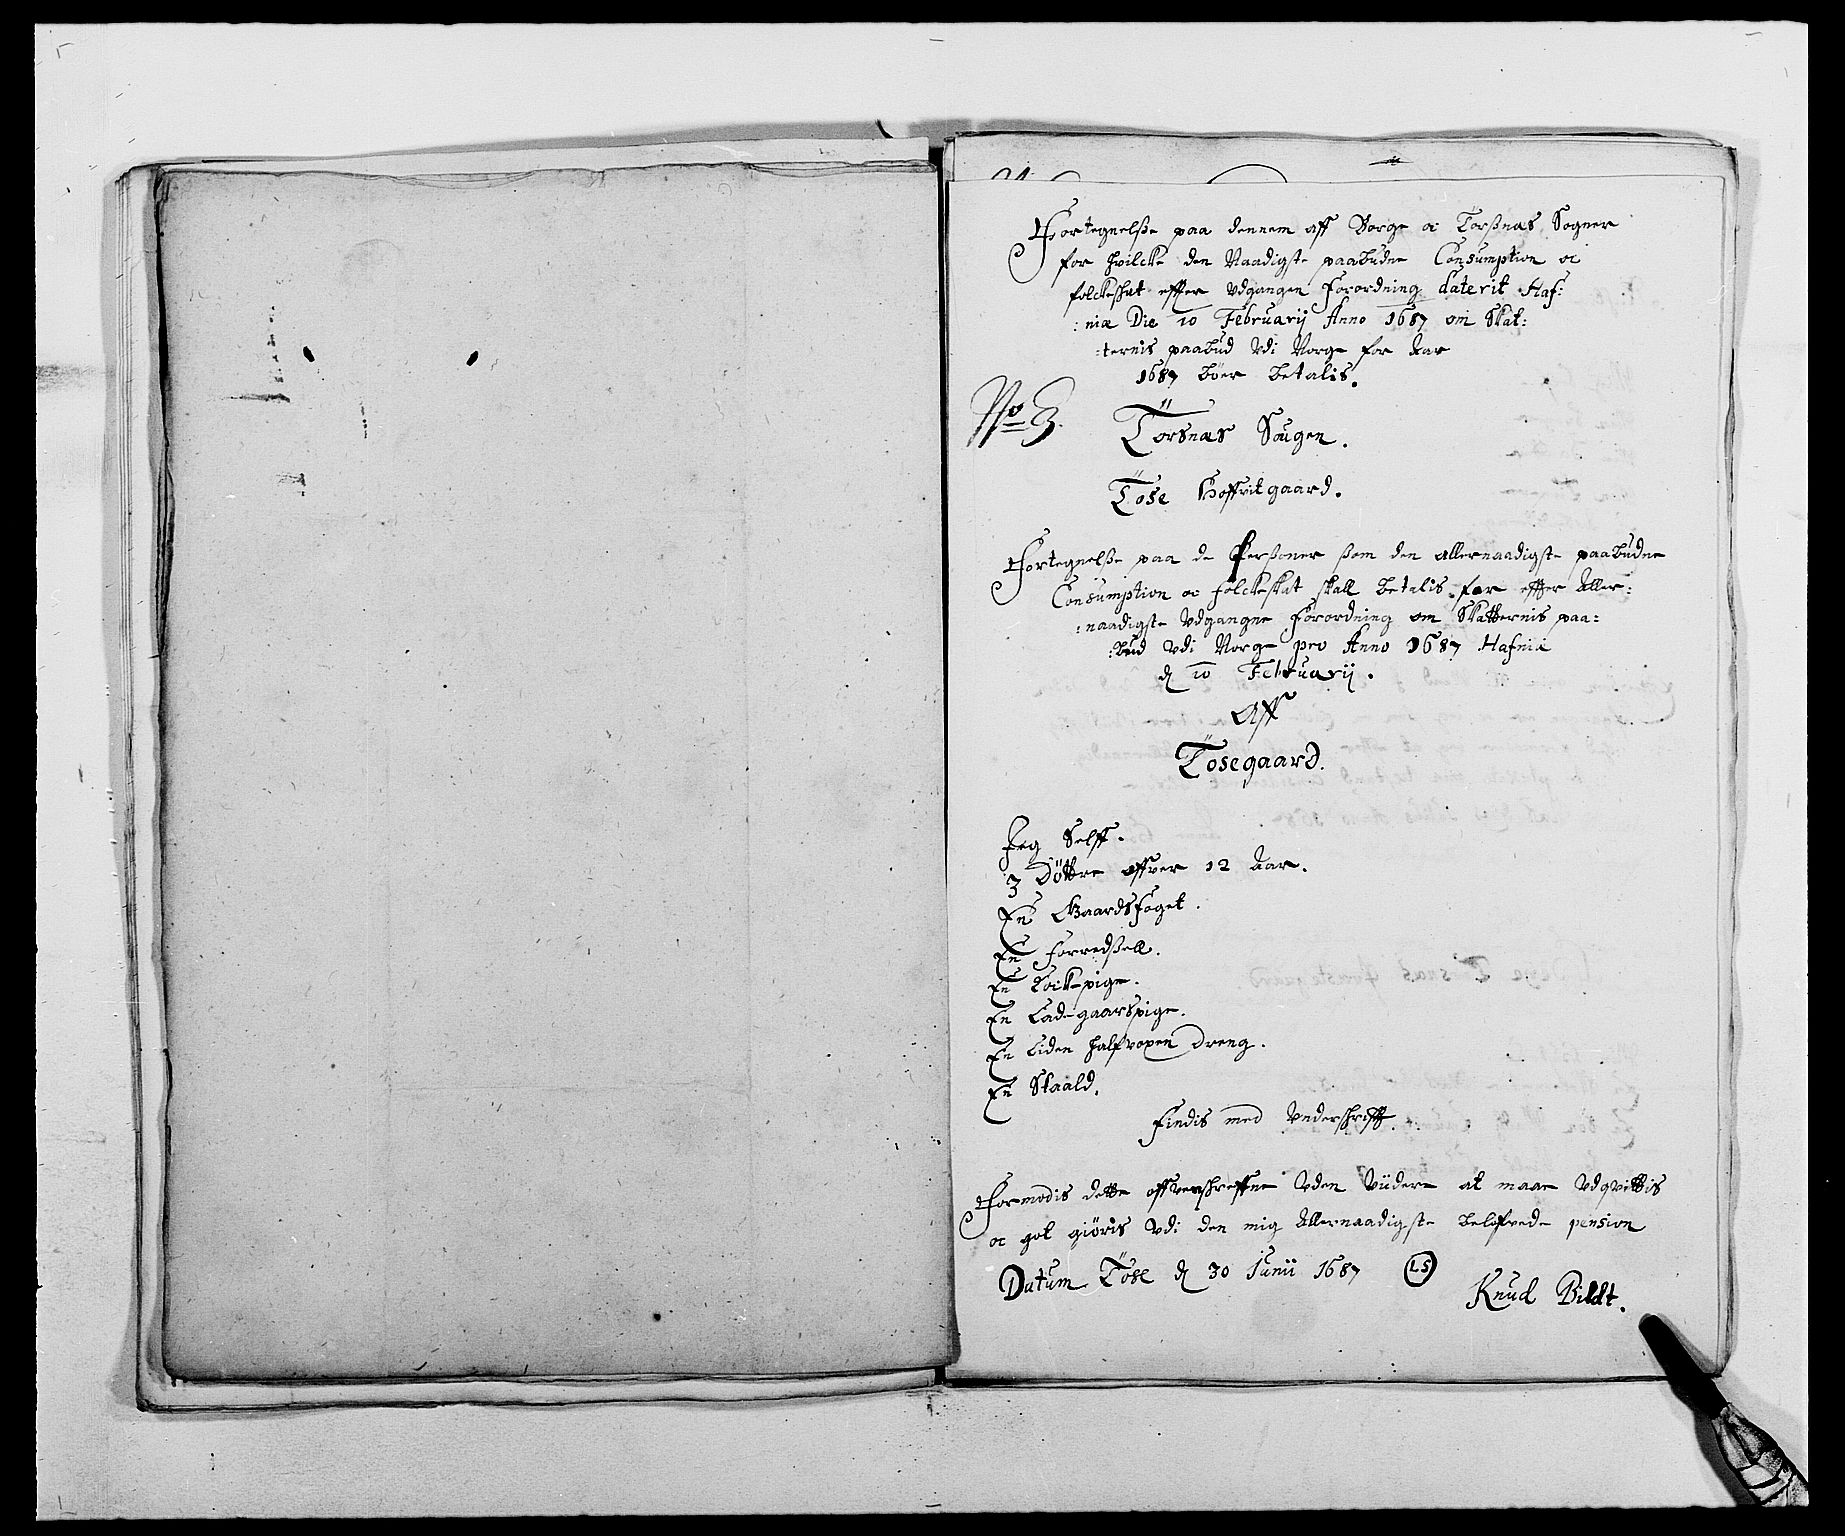 Fortegnelsse paa dennem aff Borge oc Törssnæs Sogner
for hvilcke den Naadigste paabudne Consumption oc
folckeshat effter Udgangen Forordning daterit Haf:
:niæ Die 10 Februarij Anno 1687 om Skat:
:ternis paabud Udi Norge for Aar
1687 böer betalis.
No 3.
Törsnæs Sougen.
Töse Hoffvitgaard.
Fortegnelsse paa de Perssoner ssom den allernaadigste paabudne
Consumption oc folckeskat skall betalis for effter Aller:
:naadigste Udgangne Forordning om Skatternis paa:
:bud Udi Norge pro Anno 1687 Hafniæ
d 10 Februarij.
Aff
Tösegaard.
Jeg Selff.
3 Döttre offver 12 Aar.
En Gaardsfoget.
En Forredssell.
En Kockepige.
En Ladegaarspige.
En Liden halfvoxen Dreng.
En Staald.
Findis med Underschrifft.
Formodis dette offverschreffne Uden Viidere at maae Udqvittis
oc got giöris Udi den mig Allernaadigste belofvede pension
Datum Töse d 30 Junii 1687 LS
Knud Bildt.